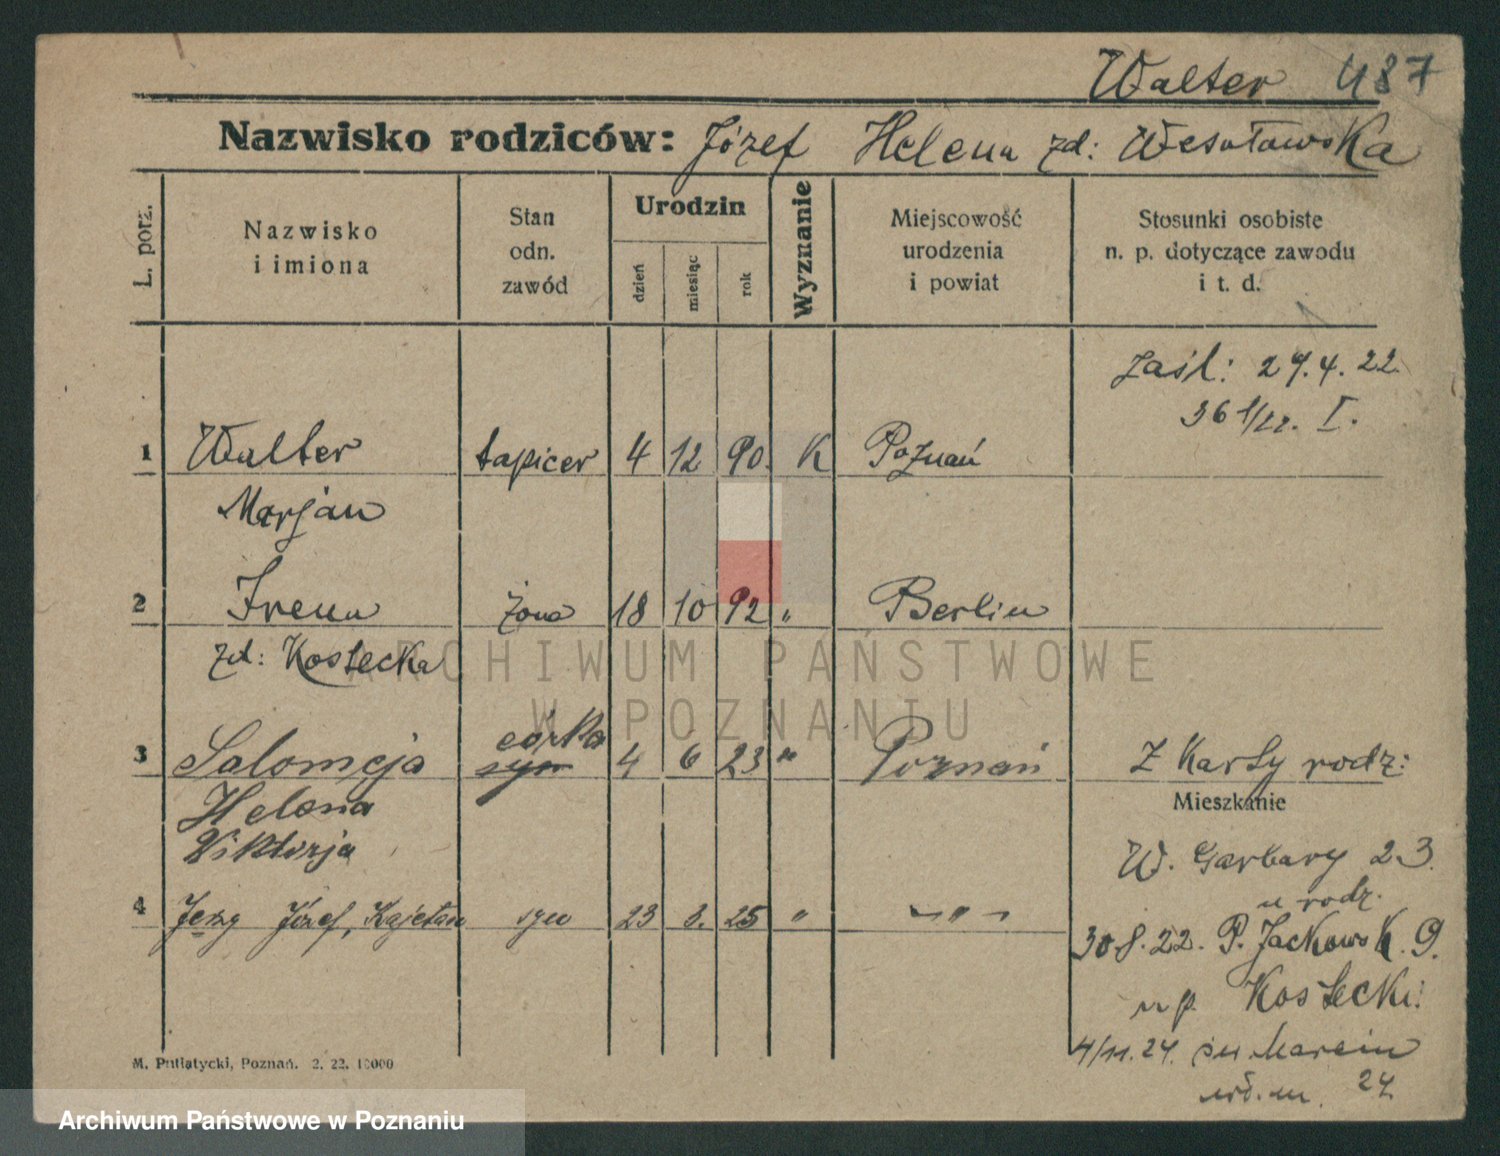 Walter 487
Nazwisko rodziców: Józef Helena zd: Wesołowska
L. porz.
Nazwisko
i imiona
Stan
odn.
zawód
Urodzin
dzień
miesiąc
rok
Wyznanie
Miejscowość
urodzenia
i powiat
Stosunki osobiste
n. p. dotyczące zawodu
i t. d.
zaśl: 29.4.22.
36 1/22. I.
1 Walter tapicer 4 12 90. K Poznań
Marjan
2 Irena żona 18 10 92 " Berlin
zd: Kostecka
ARCHIWUM PAŃSTWOWE
W POZNANIU
córka
3 Salomeja syn 4 6 23 " Poznań Z Karty rodz:
Helena
Mieszkanie
Wiktorja
W. Garbary 23.
u rodz.
4 Jerzy Józef, Kajetan syn 23 3. 25 " - " -
30.8.22. P. Jackowsk. 9.
u p. Kostecki
4/11.24. św Marcin
24
M. Putiatycki, Poznań. 2. 22. 10000
Archiwum Państwowe w Poznaniu